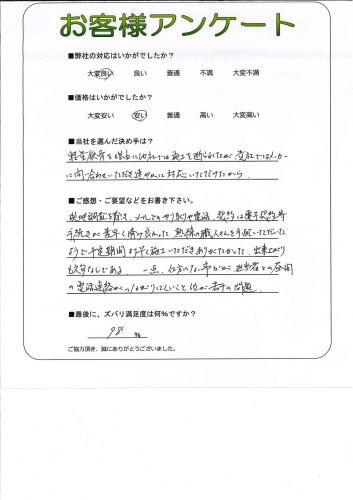 お客様アンケート
■弊社の対応はいかがでしたか？
大変良い 良い 普通 不満 大変不満
■価格はいかがでしたか？
大変安い 安い 普通 高い 大変高い
■当社を選んだ決め手は？
軽量鉄骨を理由に他社では施工を断られたが、貴社ではメーカー
に問い合わせいただき速やかに対応いただけたから
■ご感想・ご要望などをお書き下さい。
現地調査を除き、メールでのやり取りや電話、契約は電子契約等
手続きが素早く済み良かった 熟練の職人さんを手配いただいた
ようで予定期間より早く施工いただきありがたかった。出来上がり
も文句なしである 一点、仕方のない事だが担当者との昼間
の電話連絡がつながりにくいこと位が若干の問題
■最後に、ズバリ満足度は何％ですか？
98 ％
ご協力頂き、誠にありがとうございました。